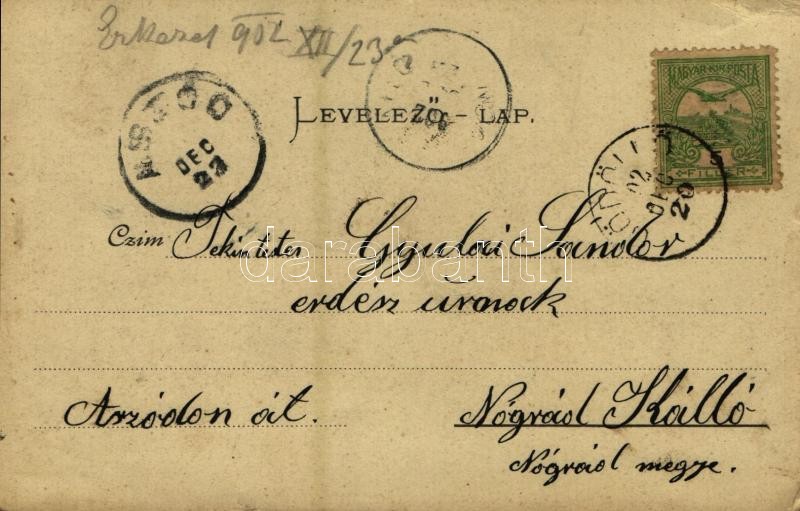 Erkezet 902 XII/23
LEVELEZŐ - LAP.
MAGYAR KIR. POSTA
5
FILLÉR
ASZÓD
DEC
23
GÖDÖLLŐ
02
DEC
20
Czim Tekintetes Gyulai Sándor
erdész úrnack
Aszódon át. Nógrád Kálló
Nógrád megye.
darabanth